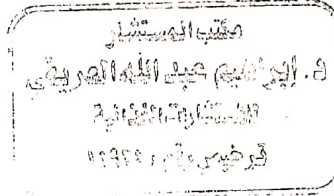 مكتب المستشار
د. إبراهيم عبد الله المريقي
للاستشارات القانونية
ترخيص رقم :